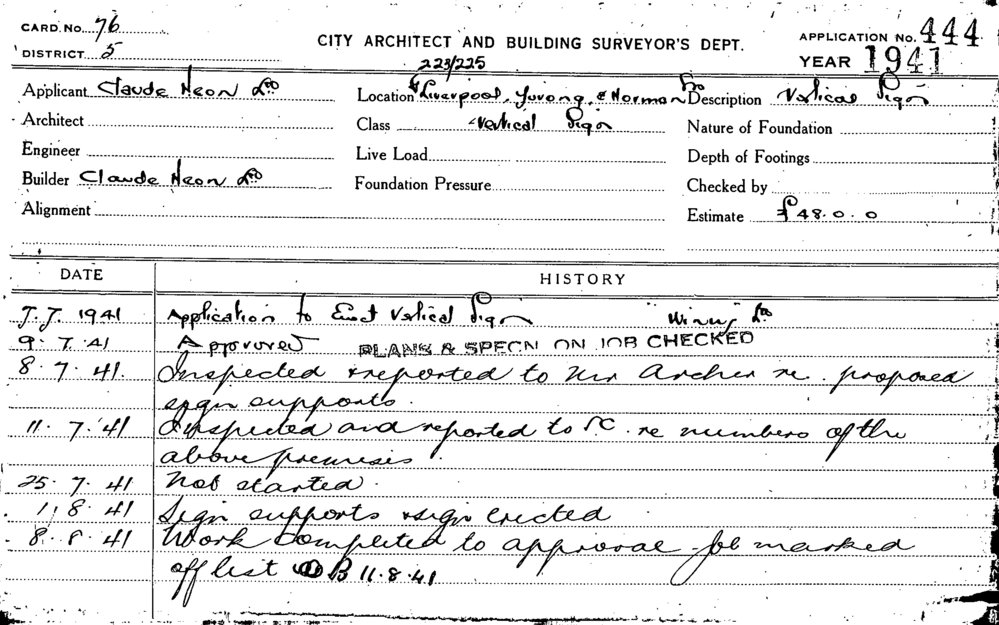 CARD NO. 76
DISTRICT 5
CITY ARCHITECT AND BUILDING SURVEYOR'S DEPT.
APPLICATION NO. 444
YEAR 1941
Applicant Claude Neon Ltd
223/225
Location Liverpool, Yurong, & Norman
Description Vertical Sign
Architect
Class Vertical Sign
Nature of Foundation
Engineer
Live Load
Depth of Footings
Builder Claude Neon Ltd
Foundation Pressure
Checked by
Alignment
Estimate £48.0.0
DATE HISTORY
7.7.1941 Application to Erect Vertical Sign
9.7.41 Approved PLANS & SPECN ON JOB CHECKED
8.7.41. Inspected & reported to Mr Archer re. proposed
sign supports.
11.7.41 Inspected and reported to re numbers of the
above premises.
25.7.41 Not started.
1.8.41 Sign supports & sign erected
8.8.41 Work completed to approval - Job marked
off list 11.8.41